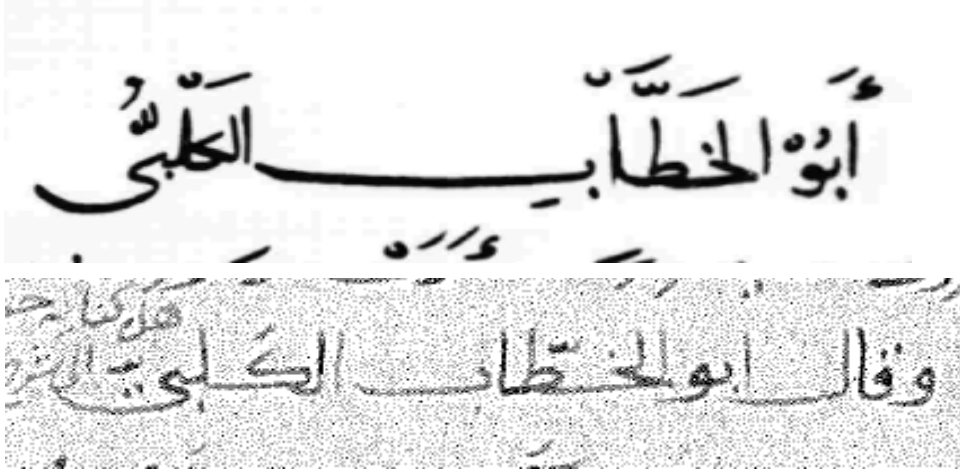 أَبُوْ الخَطَّابِ الكَلْبِيُّ
وقال ابو الخطّاب الكلبي